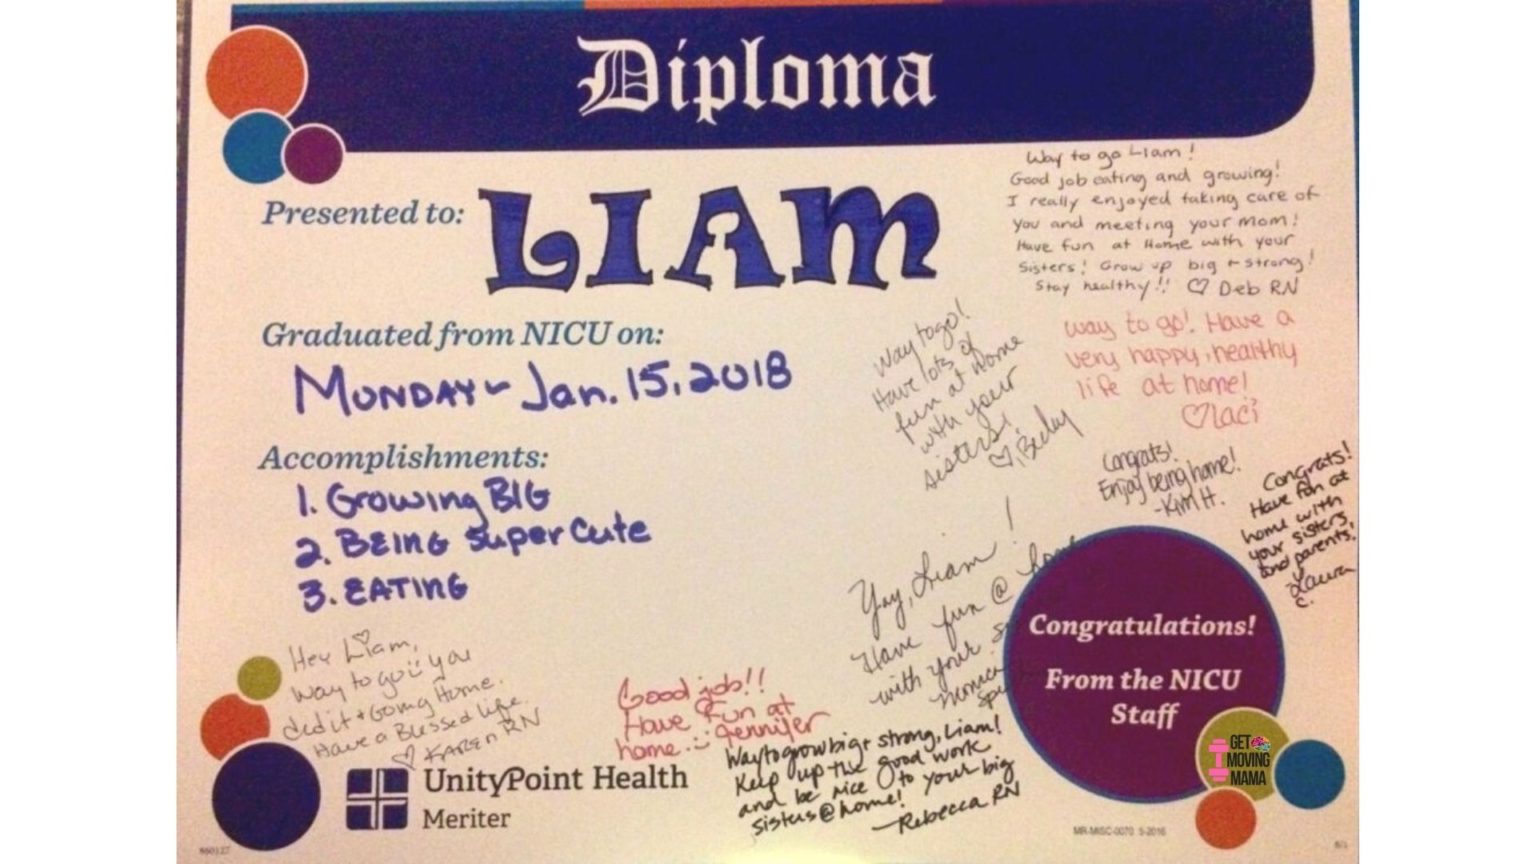 Diploma
Presented to: LIAM
Graduated from NICU on:
MONDAY~Jan. 15, 2018
Accomplishments:
1. Growing BIG
2. BEING super cute
3. EATING
Way to go Liam!
Good job eating and growing!
I really enjoyed taking care of
you and meeting your mom!
Have fun at Home with your
Sisters! Grow up big + strong!
Stay healthy!! ♡ Deb RN
Way to go!
Have lots of
fun at home
with your
sisters!
♡, Becky
way to go! Have a
very happy, healthy
life at home!
♡Laci
Congrats!
Enjoy being home!
-Kim H.
Congrats!
Have fun at
home with
your sisters
and parents!
Laura
C.
Yay, Liam!
Have fun @ home
with your
Monica
Hey Liam,
Way to go :) you
did it + Going Home.
Have a Blessed Life.
♡ KAREN RN
Good job!!
Have fun at
home :) Jennifer
Way to grow big + strong, Liam!
Keep up the good work
and be nice to your big
sisters @ home!
-Rebecca RN
Congratulations!
From the NICU
Staff
UnityPoint Health
Meriter
GET
MOVING
MAMA
MR-MISC-0070 5-2016